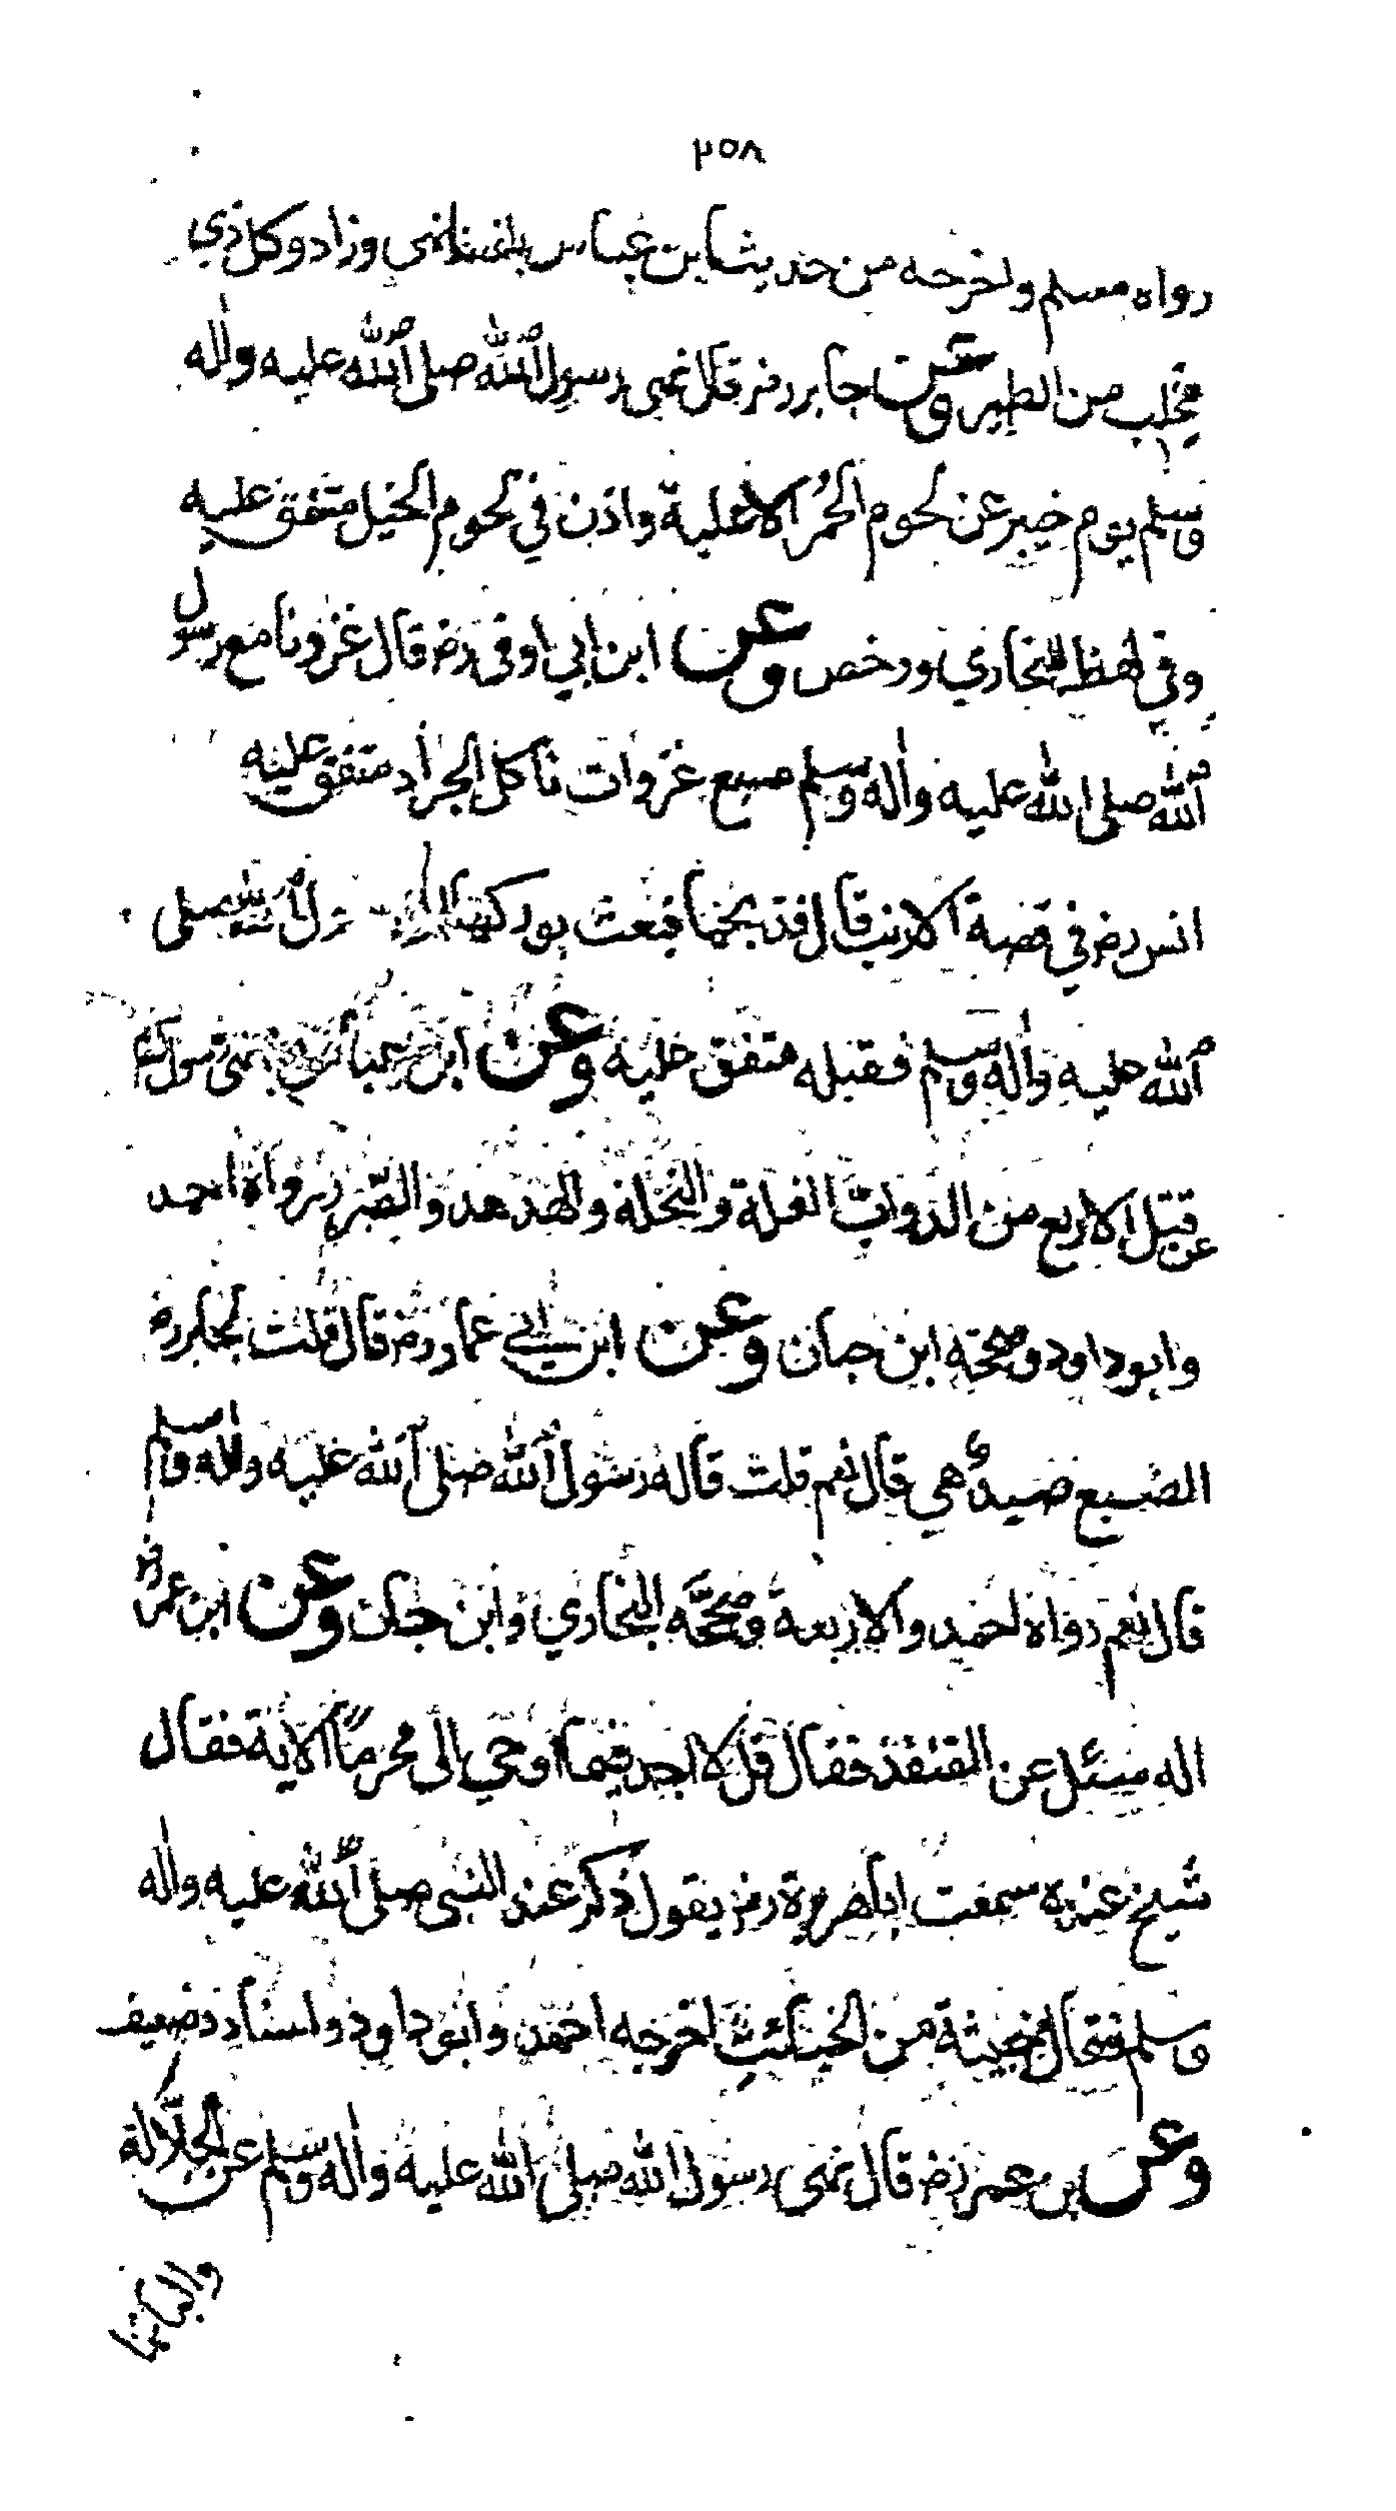 ٢٥٨
رواه مسلم واخرجه من حديث ابن عباس بلفظ نهى وزاد وكل ذي
مخلب من الطير وعن جابر رضـ قال نهى رسول الله صلى الله عليه واله
وسلم يوم خيبر عن لحوم الحمر الاهلية واذن في لحوم الخيل متفق عليه
وفي لفظ للبخاري ورخص وعن ابن ابي اوفى رضـ قال غزونا مع رسول
الله صلى الله عليه واله وسلم سبع غزوات ناكل الجراد متفق عليه
انس رضـ في قصة الارنب قال فذبحها فبعث بوركها الى رسول الله صلى
الله عليه واله وسلم فقبله متفق عليه وعن ابن عباس نهى رسول الله
عن قتل الاربع من الدواب النملة والنحلة والهدهد والصرد رواه احمد
وابو داود وصححه ابن حبان وعن ابن ابي عمار رضـ قال قلت لجابر رضـ
الضبع صيد هي قال نعم قلت قاله رسول الله صلى الله عليه واله وسلم
قال نعم رواه احمد والاربعة وصححه البخاري وابن حبان وعن ابن عمر رضـ
انه سئل عن القنفذ فقال قل لا اجد فيما اوحي الى محرما الاية فقال
شيخ عنده سمعت ابا هريرة رضـ يقول ذكر عند النبي صلى الله عليه واله
وسلم فقال خبيثة من الخبائث اخرجه احمد وابو داود واسناده ضعيف
وعن بن عمر رضـ قال نهى رسول الله صلى الله عليه واله وسلم عن الجلالة
والبانها